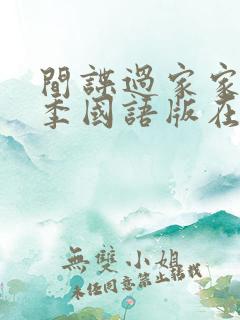 間諜過家家
季國語版在
無雙小姐
未经同意禁止转载